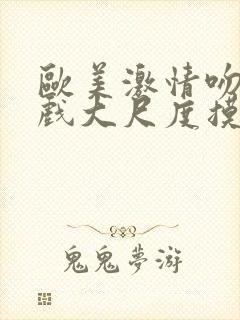 歐美激情吻
戲大尺度摸
鬼鬼夢游